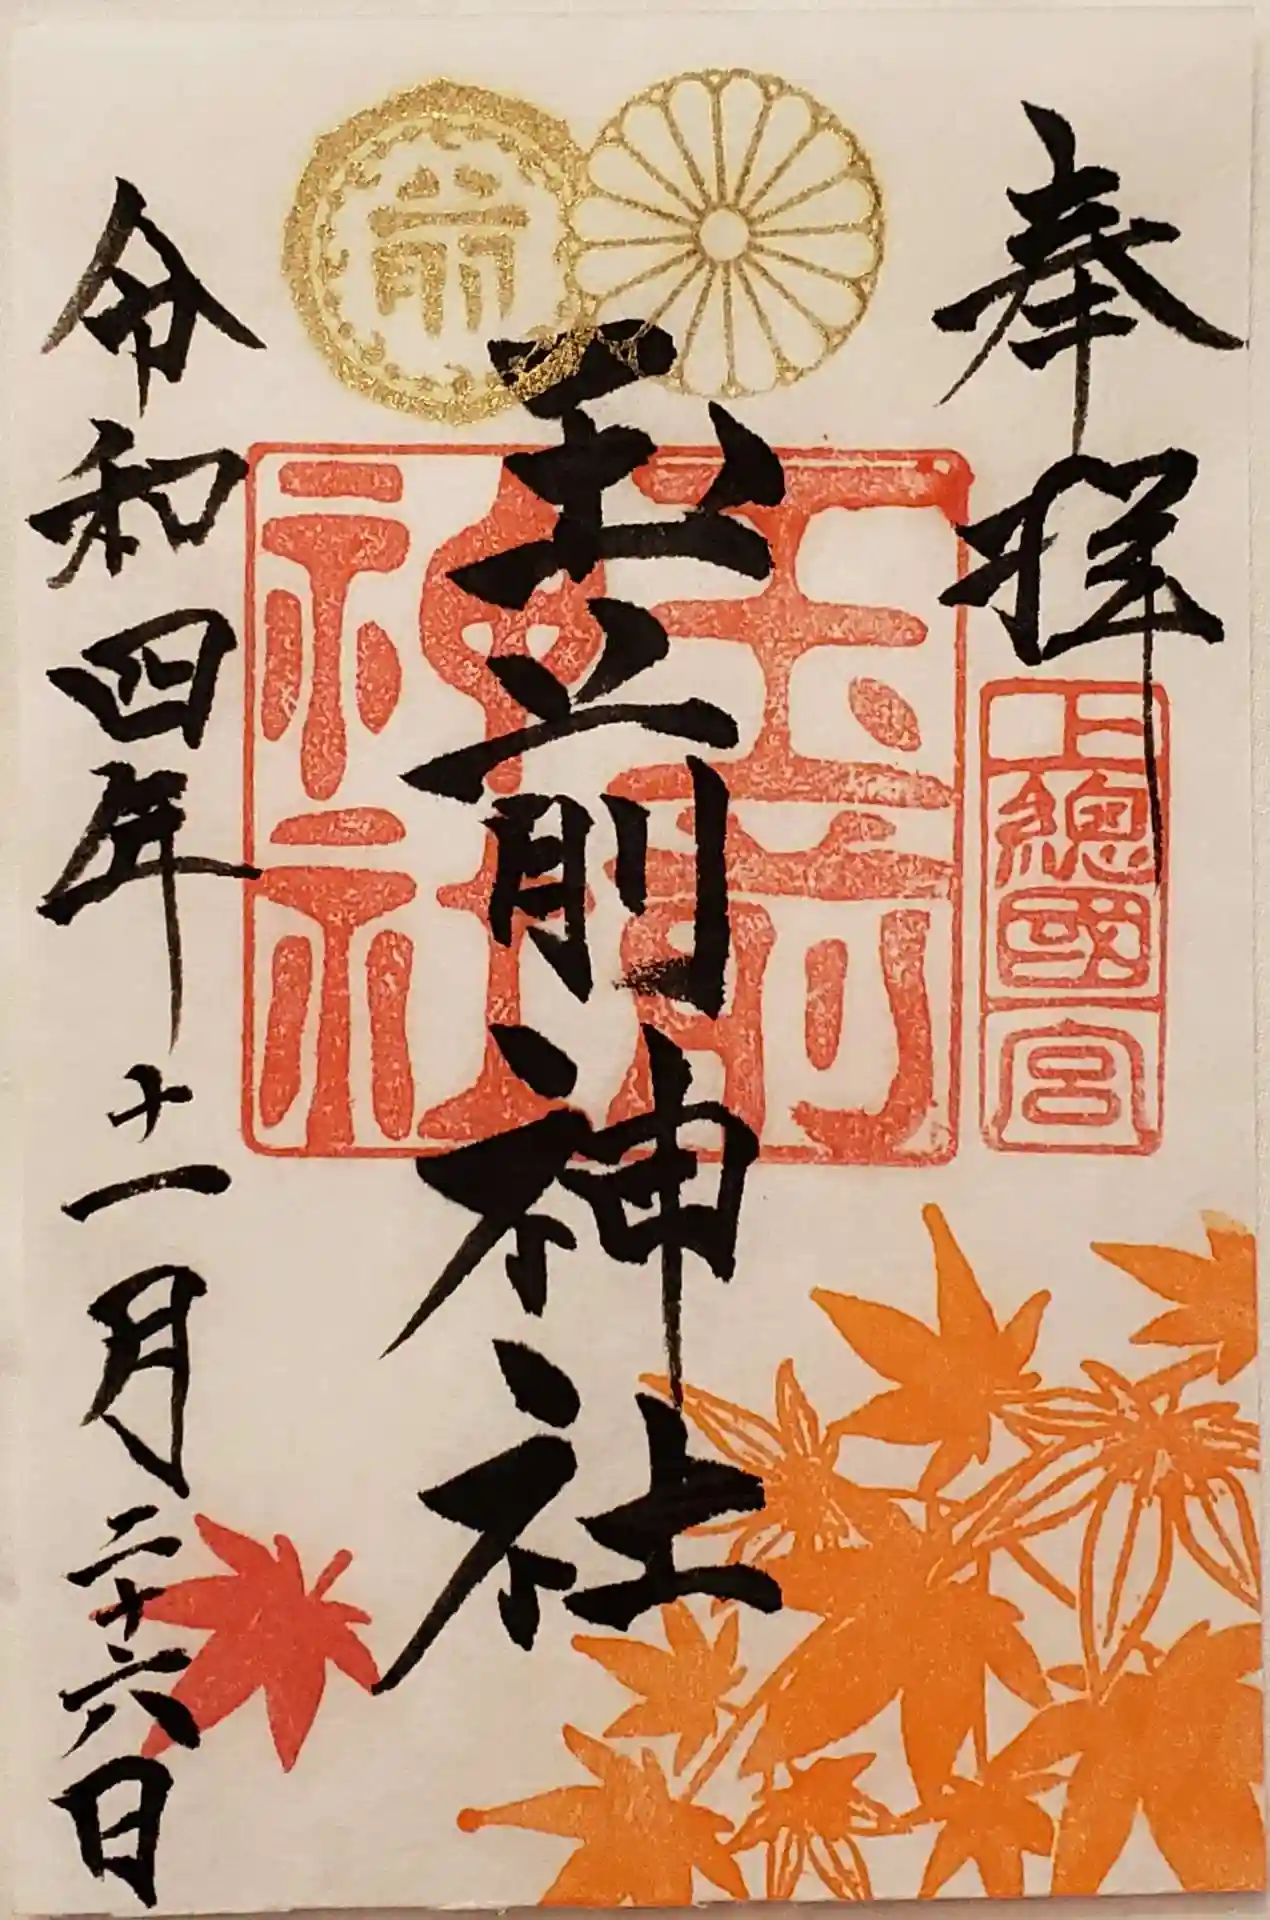 奉拜
上總國一宮
前
玉前神社
玉前神社
令和四年十一月二十六日